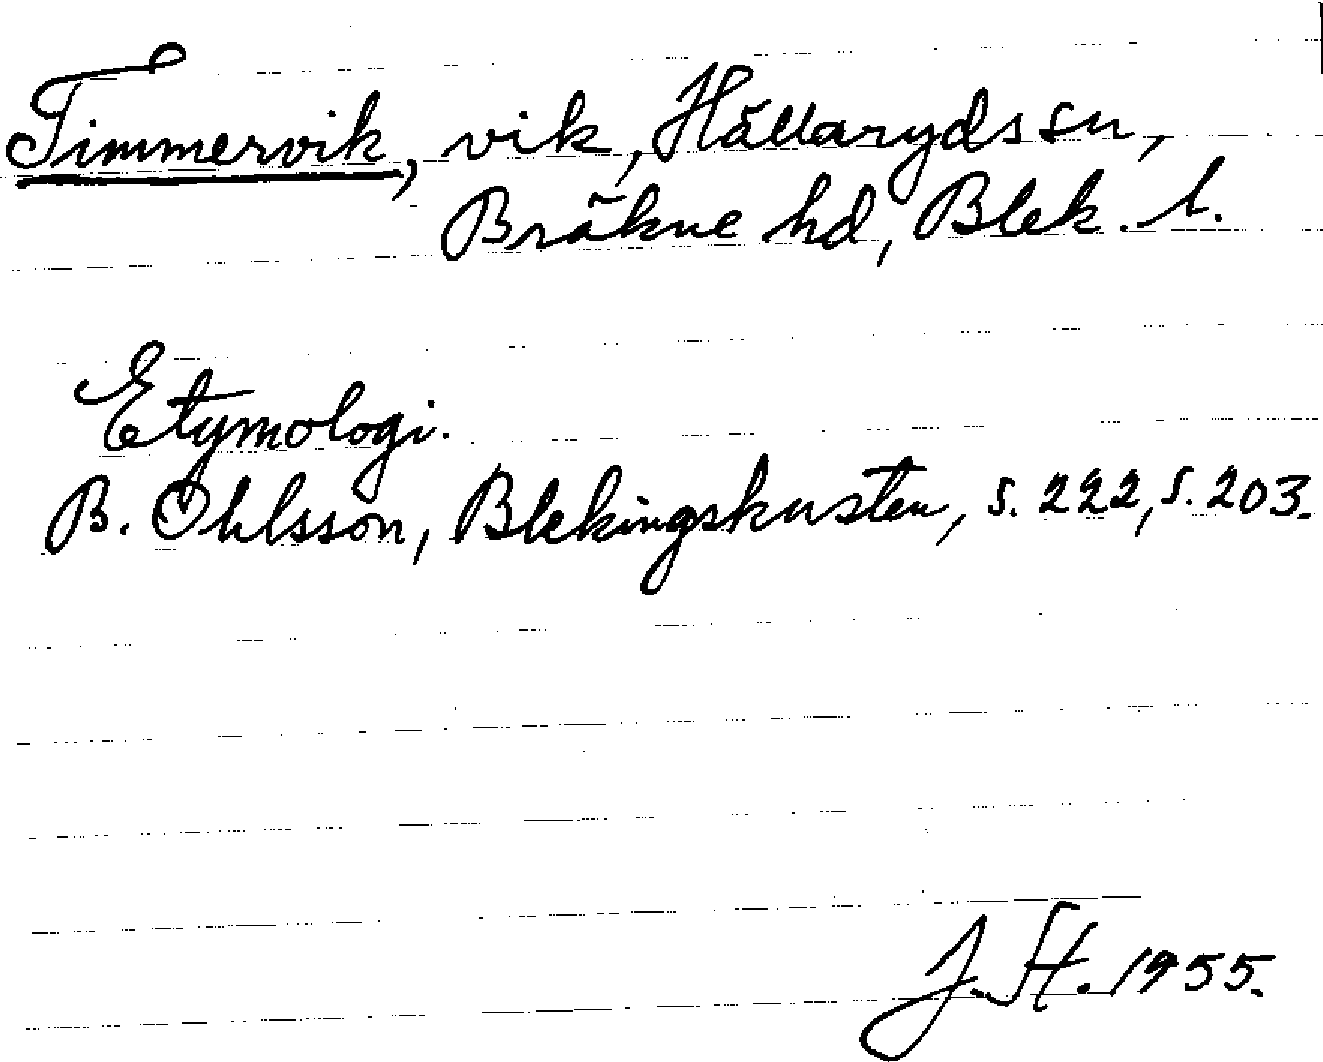 Timmervik, vik, Hällaryds sn,
Bräkne hd, Blek. l.
Etymologi.
B. Ohlsson, Blekingskusten, s. 222, s. 203.
J. H. 1955.